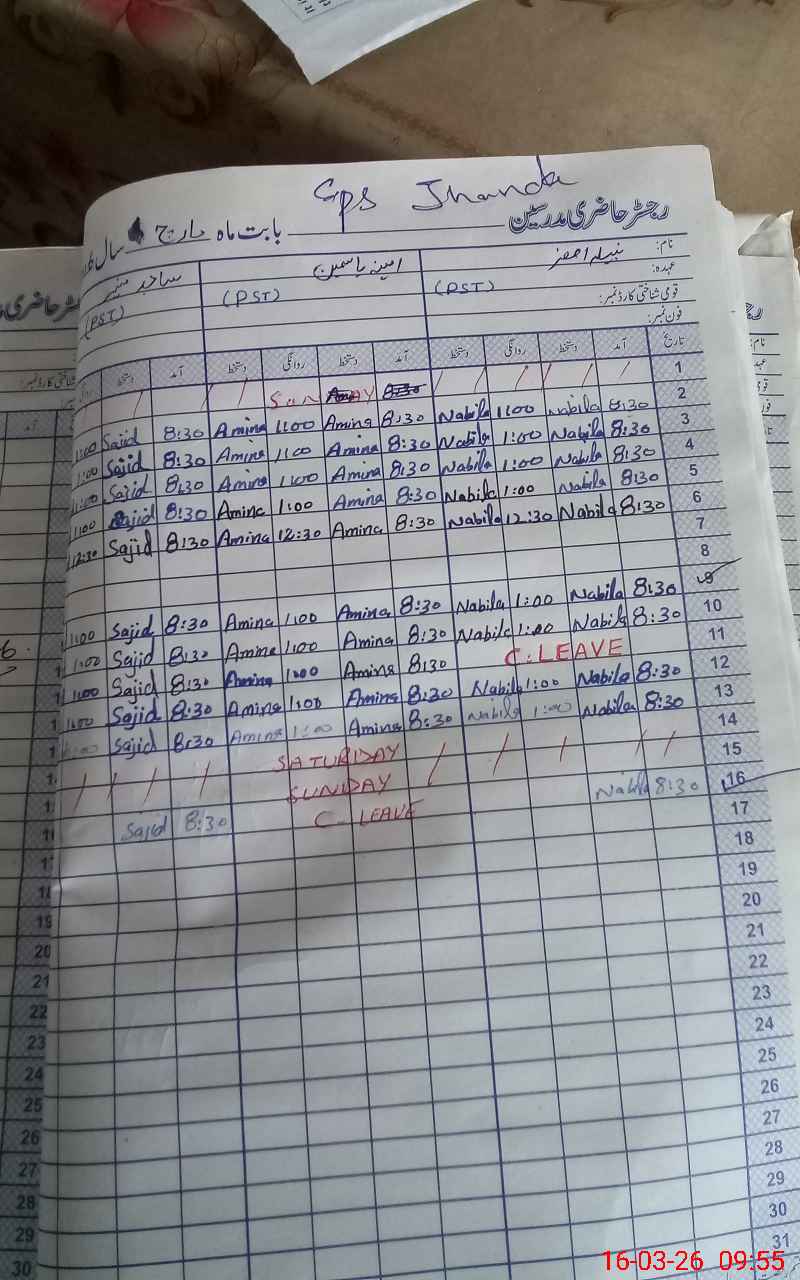 GPS Jhanda
رجسٹر حاضری مدرسین بابت ماہ مارچ سال
نام: نبیلہ اصغر امینہ یاسمین ساجد منیر
عہدہ: (PST) (PST) (PST)
قومی شناختی کارڈ نمبر:
فون نمبر:
تاریخ آمد دستخط روانگی دستخط آمد دستخط روانگی دستخط آمد دستخط
1 SUNDAY 8:30
2 8:30 Nabila 1:00 Nabila 8:30 Amina 1:00 Amina 8:30 Sajid 1:00
3 8:30 Nabila 1:00 Nabila 8:30 Amina 1:00 Amina 8:30 Sajid 1:00
4 8:30 Nabila 1:00 Nabila 8:30 Amina 1:00 Amina 8:30 Sajid 1:00
5 8:30 Nabila 1:00 Nabila 8:30 Amina 1:00 Amina 8:30 Sajid 1:00
6 8:30 Nabila 12:30 Nabila 8:30 Amina 12:30 Amina 8:30 Sajid 12:30
7
8
9 8:30 Nabila 1:00 Nabila 8:30 Amina 1:00 Amina 8:30 Sajid 1:00
10 8:30 Nabila 1:00 Nabila 8:30 Amina 1:00 Amina 8:30 Sajid 1:00
11 C.LEAVE 8:30 Amina 1:00 Amina 8:30 Sajid 1:00
12 8:30 Nabila 1:00 Nabila 8:30 Amina 1:00 Amina 8:30 Sajid 1:00
13 8:30 Nabila 1:00 Nabila 8:30 Amina 1:00 Amina 8:30 Sajid 1:00
14 SATURDAY
15 SUNDAY
16 8:30 Nabila C-LEAVE 8:30 Sajid
17
18
19
20
21
22
23
24
25
26
27
28
29
30
31
16-03-26 09:55